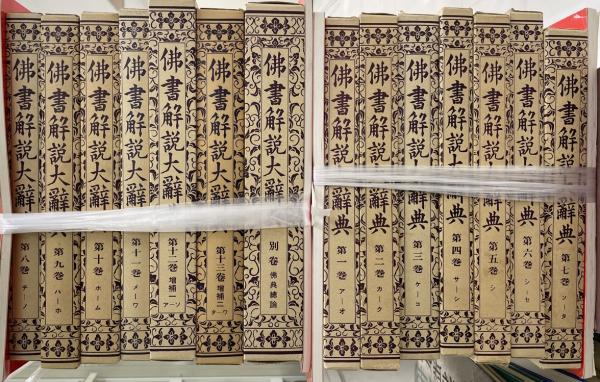 佛書解説大辭
第八巻
チー
佛書解説大辭
第九巻
ハーホ
佛書解説大辭
第十巻
ホーム
佛書解説大辭
第十一巻
メーワ
佛書解説大辭
第十二巻 増補一
アーソ
佛書解説大辭
第十三巻 増補二
ターワ
佛書解説大辭
別巻 佛典總論
佛書解説大辭典
第一巻
アーオ
佛書解説大辭典
第二巻
カーク
佛書解説大辭典
第三巻
ケーコ
佛書解説大辭典
第四巻
サーシ
佛書解説大辭典
第五巻
シ
佛書解説大辭典
第六巻
シーセ
佛書解説大辭典
第七巻
ソータ